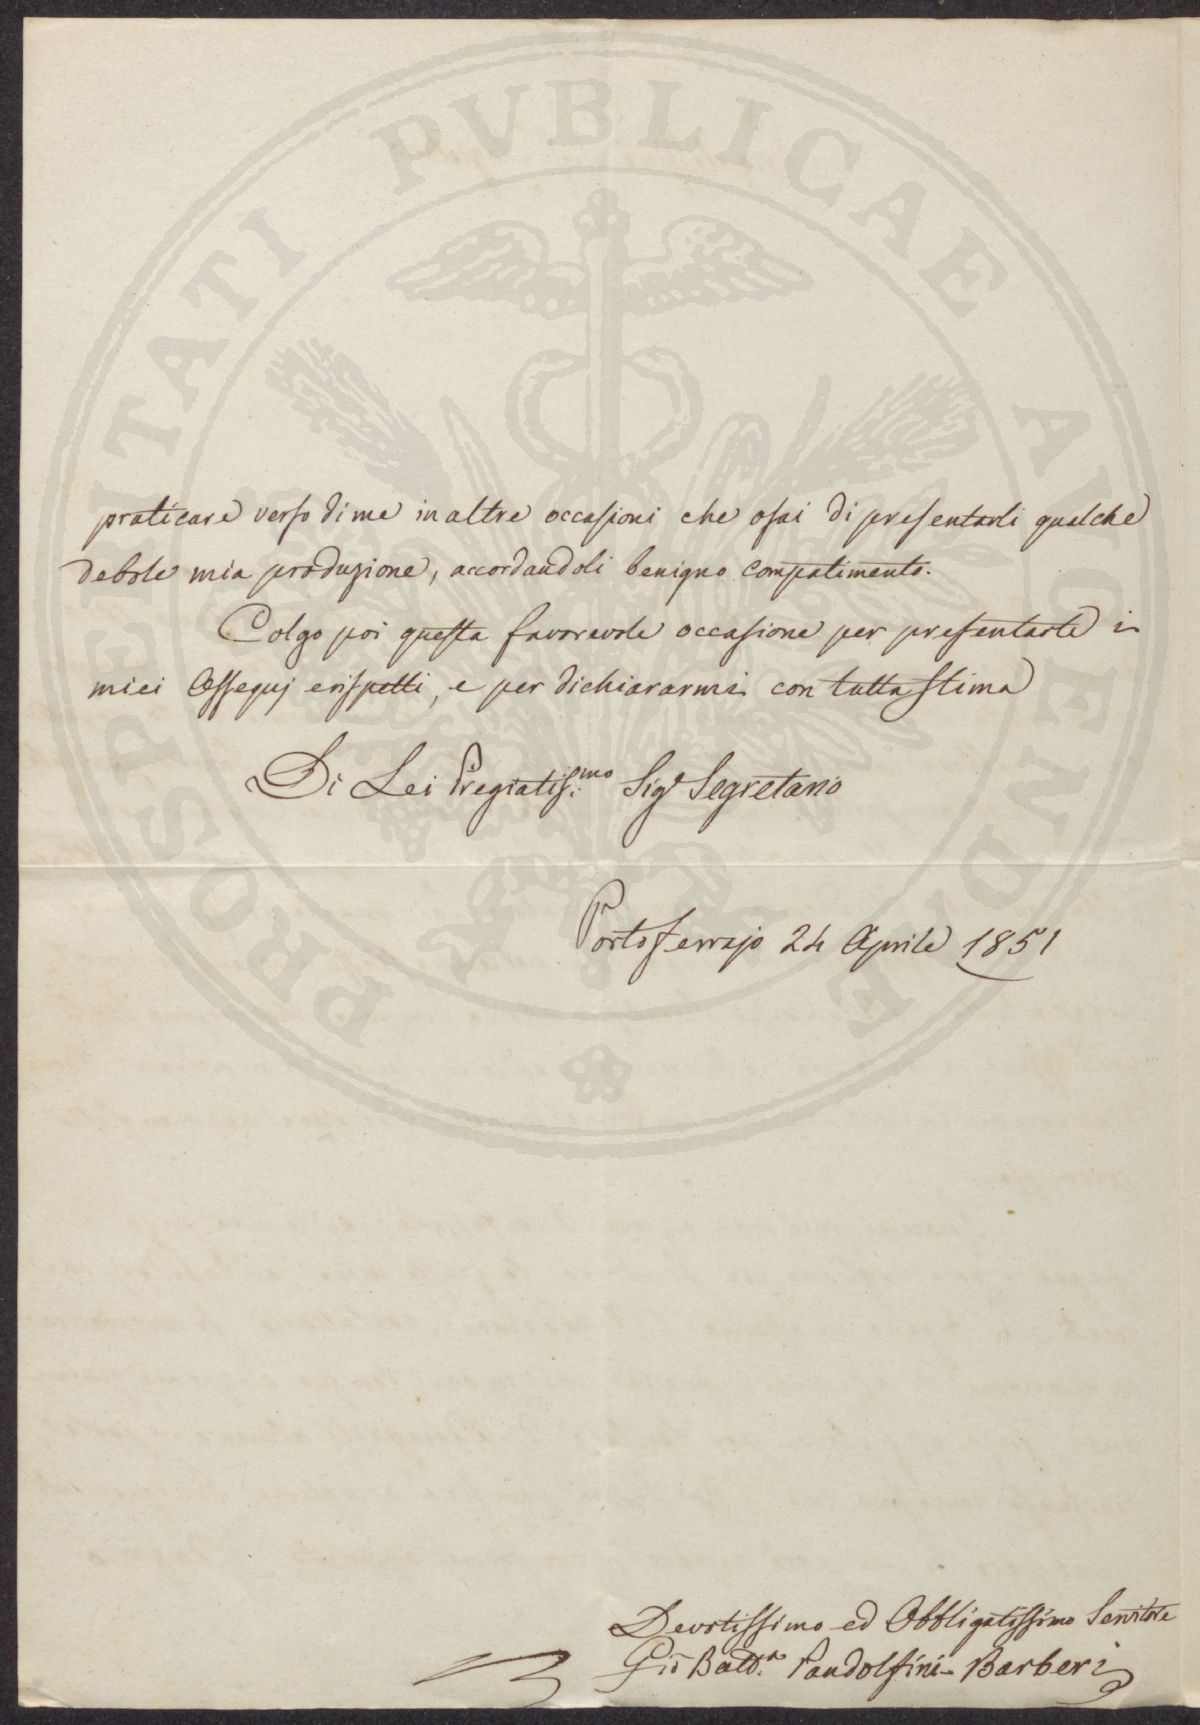 PROSPERITATI PVBLICAE AVGENDAE
praticare verso di me in altre occasioni che osai di presentarli qualche
debole mia produzione, accordandoli benigno compatimento.
Colgo poi questa favorevole occasione per presentarle i
miei Ossequj e rispetti, e per dichiararmi con tutta stima
Di Lei Pregiatis.mo Sigr Segretario
Portoferrajo 24 Aprile 1851
Devotissimo ed Obbligatissimo Servitore
Gio Batt.a Pandolfini-Barberi